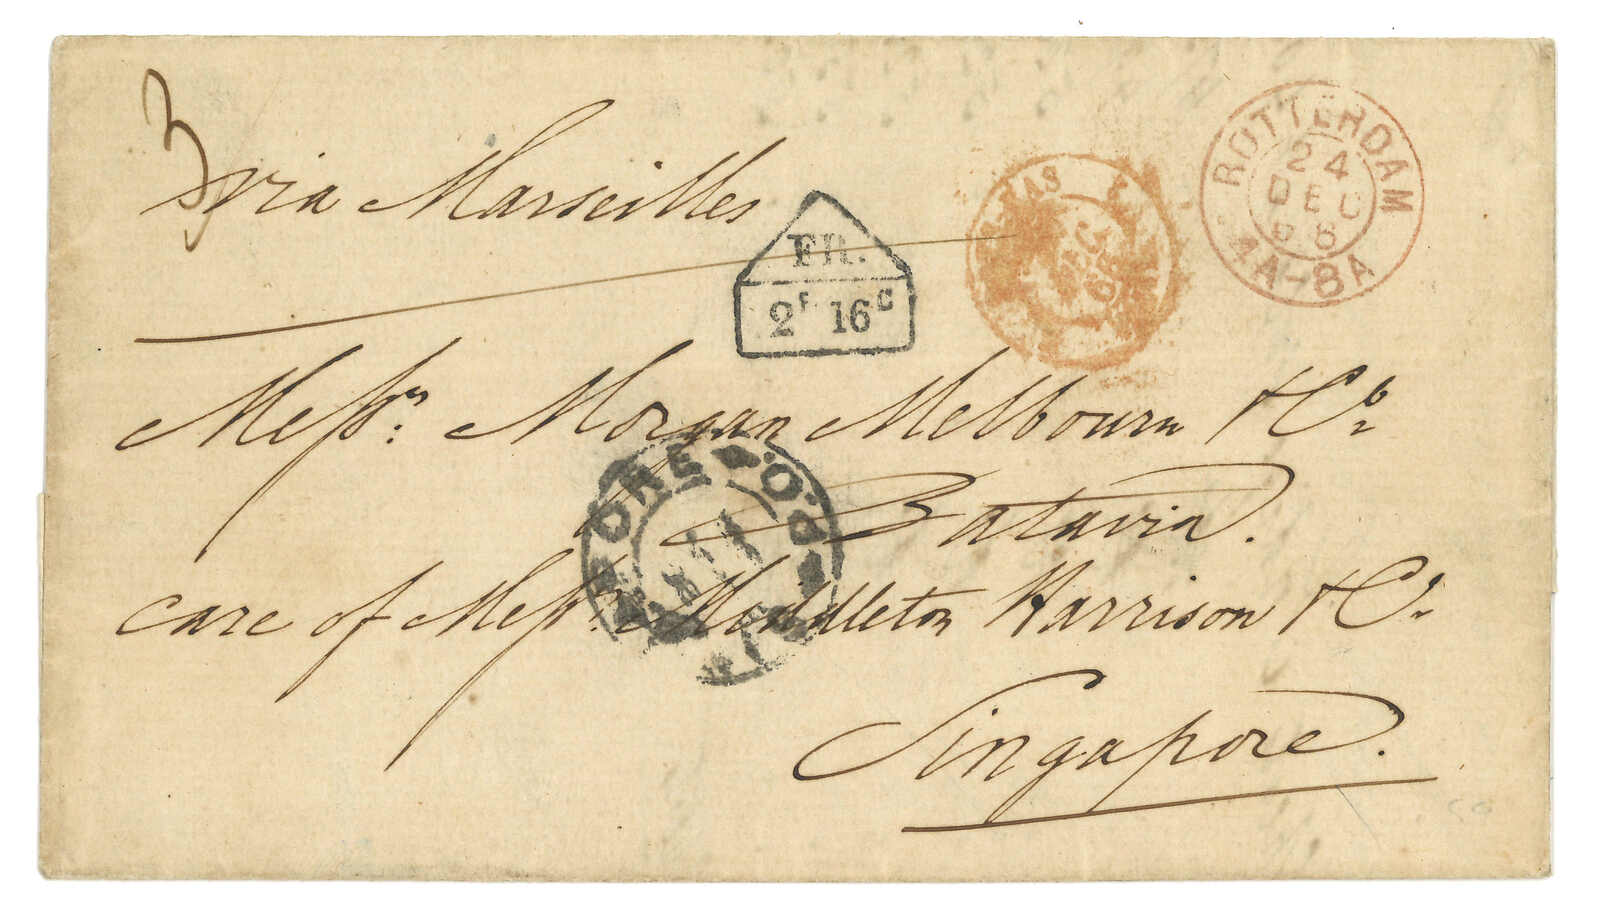 3
via Marseilles
FR.
2F 16C
ROTTERDAM
24
DEC
4A-8A
Messrs. Morgan Melbourn & Co.
Batavia.
care of Messrs. Middleton Harrison & Co.
Singapore.
ORE P.O.